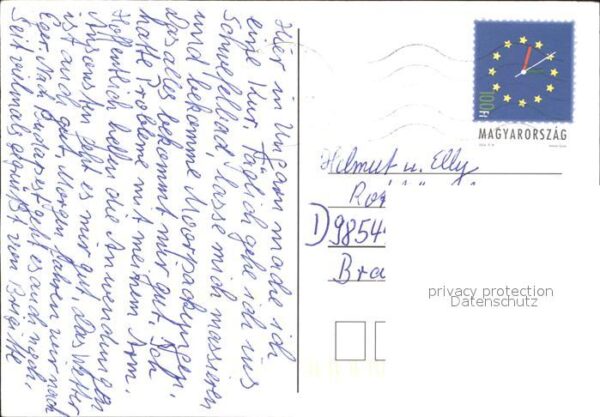 Hier in Ungarn mache ich
eine Kur. Täglich gehe ich ins
Schwefelbad, lasse mich massieren
und bekomme Moorpackungen.
Das alles bekommt mir gut. Ich
hatte Probleme mit meinem Arm.
Hoffentlich helfen die Anwendungen.
Ansonsten geht es mir gut. Das Wetter
ist auch gut. Morgen fahren wir nach
Eger. Nach Budapest geht es auch noch.
Seit vielmals gegrüßt von Brigitte
100Ft
MAGYARORSZÁG
Helmut u. Elly
D 9854
Bra
privacy protection
Datenschutz